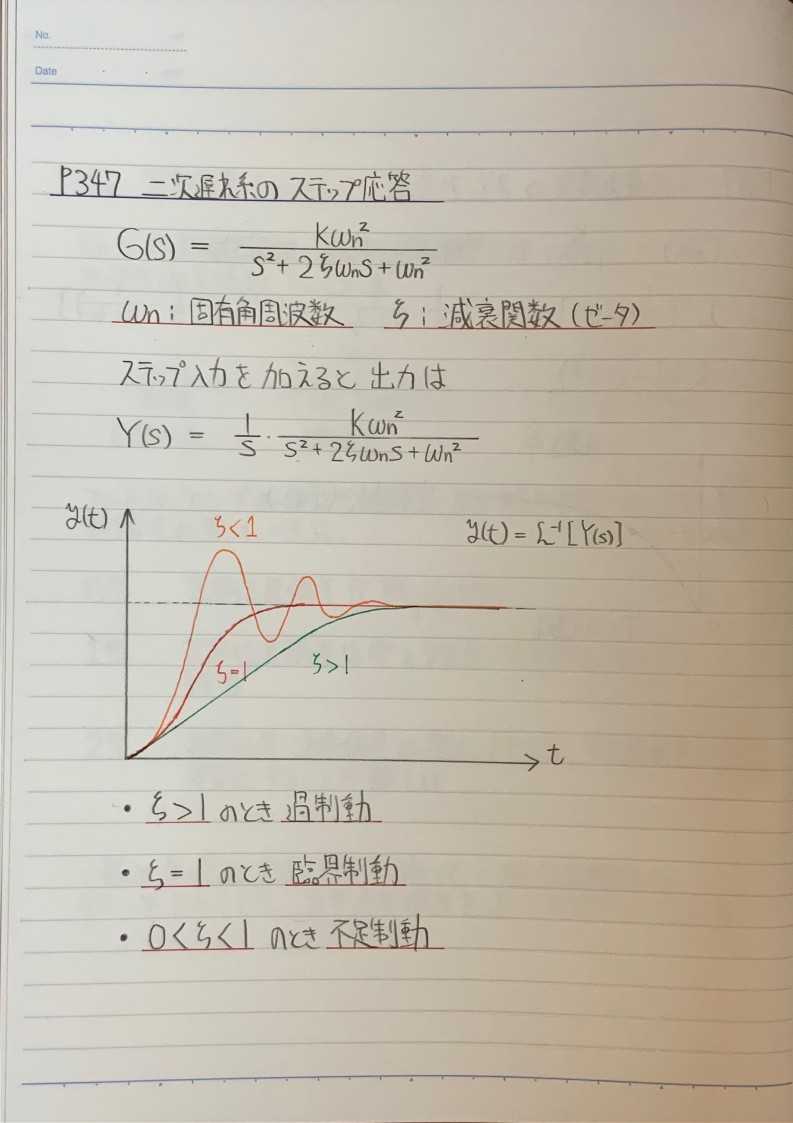 No.
Date
P347 二次遅れ系のステップ応答
G(s) = Kωn² / (s² + 2ζωns + ωn²)
ωn : 固有角周波数 ζ : 減衰関数 (ゼータ)
ステップ入力を加えると出力は
Y(s) = 1/s · Kωn² / (s² + 2ζωns + ωn²)
y(t)
ζ<1
y(t) = L⁻¹[Y(s)]
ζ=1
ζ>1
t
・ζ>1 のとき 過制動
・ζ=1 のとき 臨界制動
・0<ζ<1 のとき 不足制動